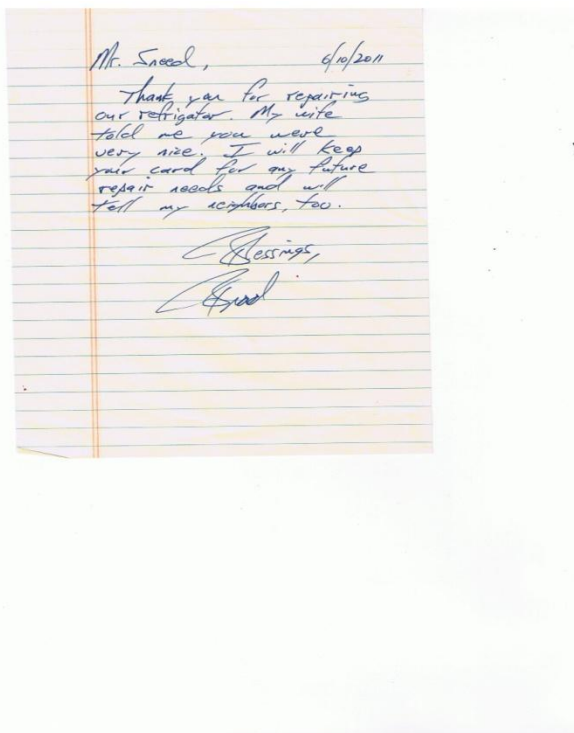 Mr. Sneed, 6/10/2011
Thank you for repairing
our refrigator. My wife
told me you were
very nice. I will keep
your card for any future
repair needs and will
tell my neighbors, too.
Blessings,
Brad